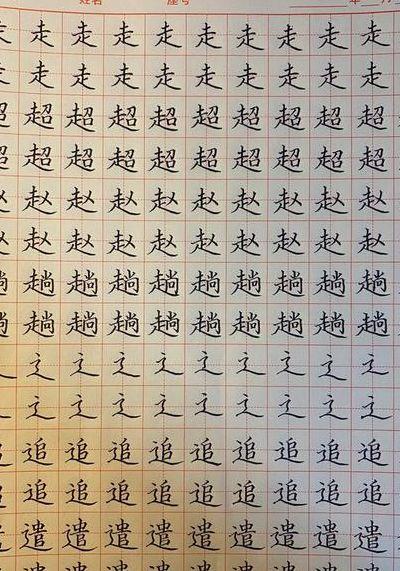 姓名 座号 年 月
走走走走走走走走走
走走走走走走走走走
超超超超超超超超超
超超超超超超超超超
赵赵赵赵赵赵赵赵赵
赵赵赵赵赵赵赵赵赵
趟趟趟趟趟趟趟趟趟
趟趟趟趟趟趟趟趟趟
辶辶辶辶辶辶辶辶辶
辶辶辶辶辶辶辶辶辶
追追追追追追追追追
追追追追追追追追追
遣遣遣遣遣遣遣遣遣